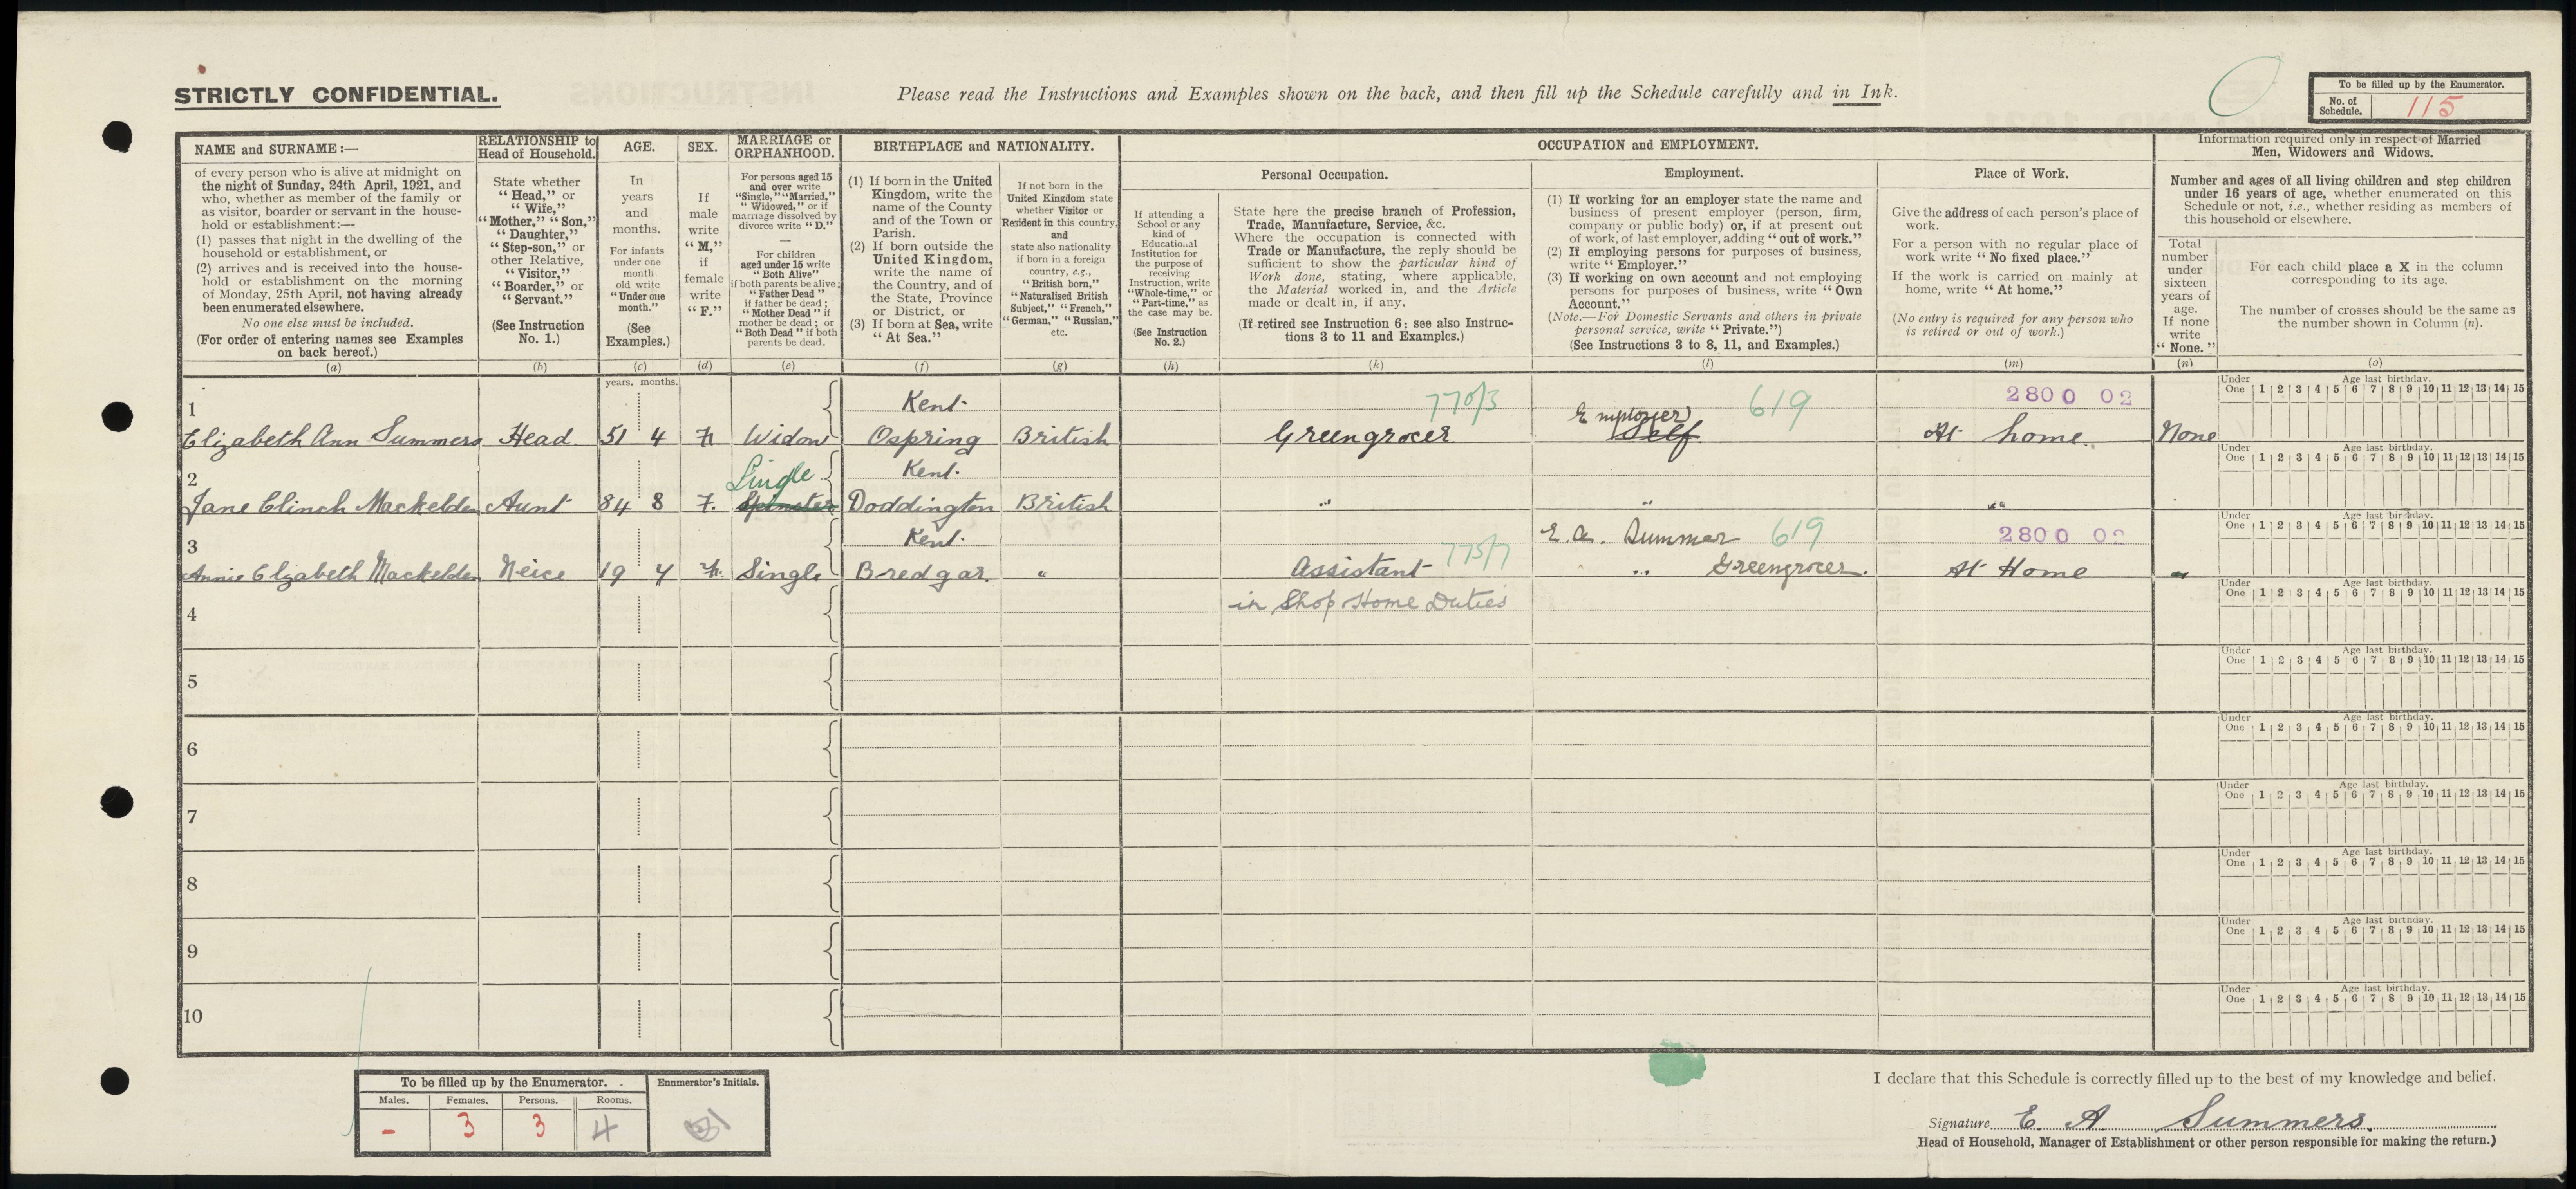 STRICTLY CONFIDENTIAL.
Please read the Instructions and Examples shown on the back, and then fill up the Schedule carefully and in Ink.
To be filled up by the Enumerator.
No. of Schedule. 115
NAME and SURNAME:—
of every person who is alive at midnight on
the night of Sunday, 24th April, 1921, and
who, whether as member of the family or
as visitor, boarder or servant in the house-
hold or establishment:—
(1) passes that night in the dwelling of the
household or establishment, or
(2) arrives and is received into the house-
hold or establishment on the morning
of Monday, 25th April, not having already
been enumerated elsewhere.
No one else must be included.
(For order of entering names see Examples
on back hereof.)
(a)
RELATIONSHIP to
Head of Household.
State whether
"Head," or
"Wife,"
"Mother," "Son,"
"Daughter,"
"Step-son," or
other Relative,
"Visitor,"
"Boarder," or
"Servant."
(See Instruction
No. 1.)
(b)
AGE.
In
years
and
months.
For infants
under one
month
old write
"Under one
month."
(See
Examples.)
(c)
SEX.
If
male
write
"M,"
if
female
write
"F."
(d)
MARRIAGE or
ORPHANHOOD.
For persons aged 15
and over write
"Single," "Married,"
"Widowed," or if
marriage dissolved by
divorce write "D."
For children
aged under 15 write
"Both Alive"
if both parents be alive;
"Father Dead"
if father be dead;
"Mother Dead" if
mother be dead; or
"Both Dead" if both
parents be dead.
(e)
BIRTHPLACE and NATIONALITY.
(1) If born in the United
Kingdom, write the
name of the County
and of the Town or
Parish.
(2) If born outside the
United Kingdom,
write the name of
the Country, and of
the State, Province
or District, or
(3) If born at Sea, write
"At Sea."
(f)
If not born in the
United Kingdom state
whether Visitor or
Resident in this country,
and
state also nationality
if born in a foreign
country, e.g.,
"British born,"
"Naturalised British
Subject," "French,"
"German," "Russian,"
etc.
(g)
OCCUPATION and EMPLOYMENT.
If attending a
School or any
kind of
Educational
Institution for
the purpose of
receiving
Instruction, write
"Whole-time," or
"Part-time," as
the case may be.
(See Instruction
No. 2.)
(h)
Personal Occupation.
State here the precise branch of Profession,
Trade, Manufacture, Service, &c.
Where the occupation is connected with
Trade or Manufacture, the reply should be
sufficient to show the particular kind of
Work done, stating, where applicable,
the Material worked in, and the Article
made or dealt in, if any.
(If retired see Instruction 6; see also Instruc-
tions 3 to 11 and Examples.)
(k)
Employment.
(1) If working for an employer state the name and
business of present employer (person, firm,
company or public body) or, if at present out
of work, of last employer, adding "out of work."
(2) If employing persons for purposes of business,
write "Employer."
(3) If working on own account and not employing
persons for purposes of business, write "Own
Account."
(Note.—For Domestic Servants and others in private
personal service, write "Private.")
(See Instructions 3 to 8, 11, and Examples.)
(l)
Place of Work.
Give the address of each person's place of
work.
For a person with no regular place of
work write "No fixed place."
If the work is carried on mainly at
home, write "At home."
(No entry is required for any person who
is retired or out of work.)
(m)
Information required only in respect of Married
Men, Widowers and Widows.
Number and ages of all living children and step children
under 16 years of age, whether enumerated on this
Schedule or not, i.e., whether residing as members of
this household or elsewhere.
Total
number
under
sixteen
years of
age.
If none
write
"None."
(n)
For each child place a X in the column
corresponding to its age.
The number of crosses should be the same as
the number shown in Column (n).
(o)
years. months.
1 Kent 770/3 Employer 619 2800 02
Elizabeth Ann Summers Head. 51 4 F Widow Ospring British Greengrocer Self At home. None
Under One Age last birthday. 1 2 3 4 5 6 7 8 9 10 11 12 13 14 15
2 Single Kent.
Jane Clinch Mackelden Aunt 84 8 F. Spinster Doddington British " " "
Under One Age last birthday. 1 2 3 4 5 6 7 8 9 10 11 12 13 14 15
3 Kent. E. A. Summer 619 2800 02
Annie Elizabeth Mackelden Neice 19 7 F. Single Bredgar. " Assistant 775/7 " Greengrocer. At Home "
Under One Age last birthday. 1 2 3 4 5 6 7 8 9 10 11 12 13 14 15
4 in Shop Home Duties
Under One Age last birthday. 1 2 3 4 5 6 7 8 9 10 11 12 13 14 15
5
Under One Age last birthday. 1 2 3 4 5 6 7 8 9 10 11 12 13 14 15
6
Under One Age last birthday. 1 2 3 4 5 6 7 8 9 10 11 12 13 14 15
7
Under One Age last birthday. 1 2 3 4 5 6 7 8 9 10 11 12 13 14 15
8
Under One Age last birthday. 1 2 3 4 5 6 7 8 9 10 11 12 13 14 15
9
Under One Age last birthday. 1 2 3 4 5 6 7 8 9 10 11 12 13 14 15
10
Under One Age last birthday. 1 2 3 4 5 6 7 8 9 10 11 12 13 14 15
To be filled up by the Enumerator.
Enumerator's Initials.
Males. Females. Persons. Rooms.
- 3 3 4
I declare that this Schedule is correctly filled up to the best of my knowledge and belief.
Signature E A Summers.
Head of Household, Manager of Establishment or other person responsible for making the return.)